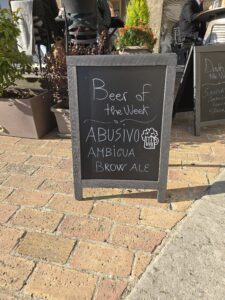 Beer of
the Week
ABUSIVO
AMBIGUA
BROW ALE